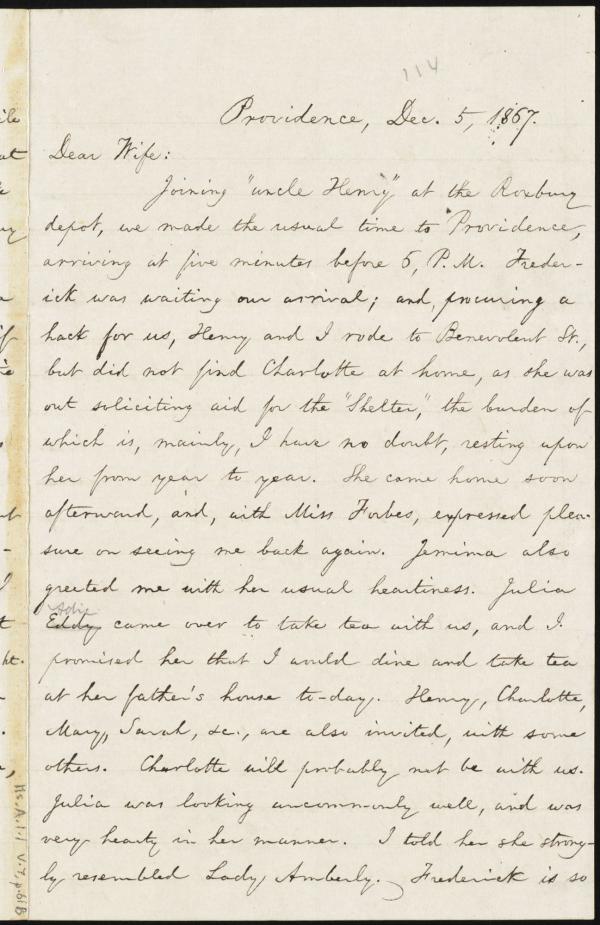 114
Providence, Dec. 5, 1867.
Dear Wife:
Joining "uncle Henry" at the Roxbury
depot, we made the usual time to Providence,
arriving at five minutes before 6, P.M. Freder-
ick was waiting our arrival; and, procuring a
hack for us, Henry and I rode to Benevolent St.,
but did not find Charlotte at home, as she was
out soliciting aid for the "Shelter," the burden of
which is, mainly, I have no doubt, resting upon
her from year to year. She came home soon
afterward, and, with Miss Forbes, expressed plea-
sure on seeing me back again. Jemima also
greeted me with her usual heartiness. Julia
Adie
Eddy came over to take tea with us, and I
promised her that I would dine and take tea
at her father's house to-day. Henry, Charlotte,
Mary, Sarah, &c., are also invited, with some
others. Charlotte will probably not be with us.
Julia was looking uncommonly well, and was
very hearty in her manner. I told her she strong-
ly resembled Lady Amberly. Frederick is so
Ms.A.1.1 V.7, p.61B